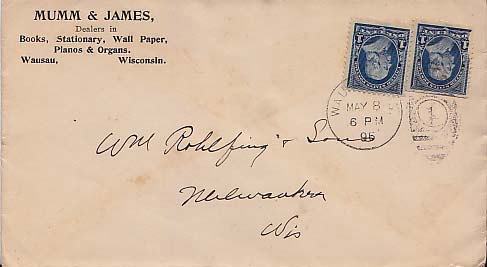 MUMM & JAMES,
Dealers in
Books, Stationary, Wall Paper,
Pianos & Organs.
Wausau, Wisconsin.
1 1
WAU
MAY 8
6 PM
96
1
Wm Rohlfing & Sons
Milwaukee
Wis